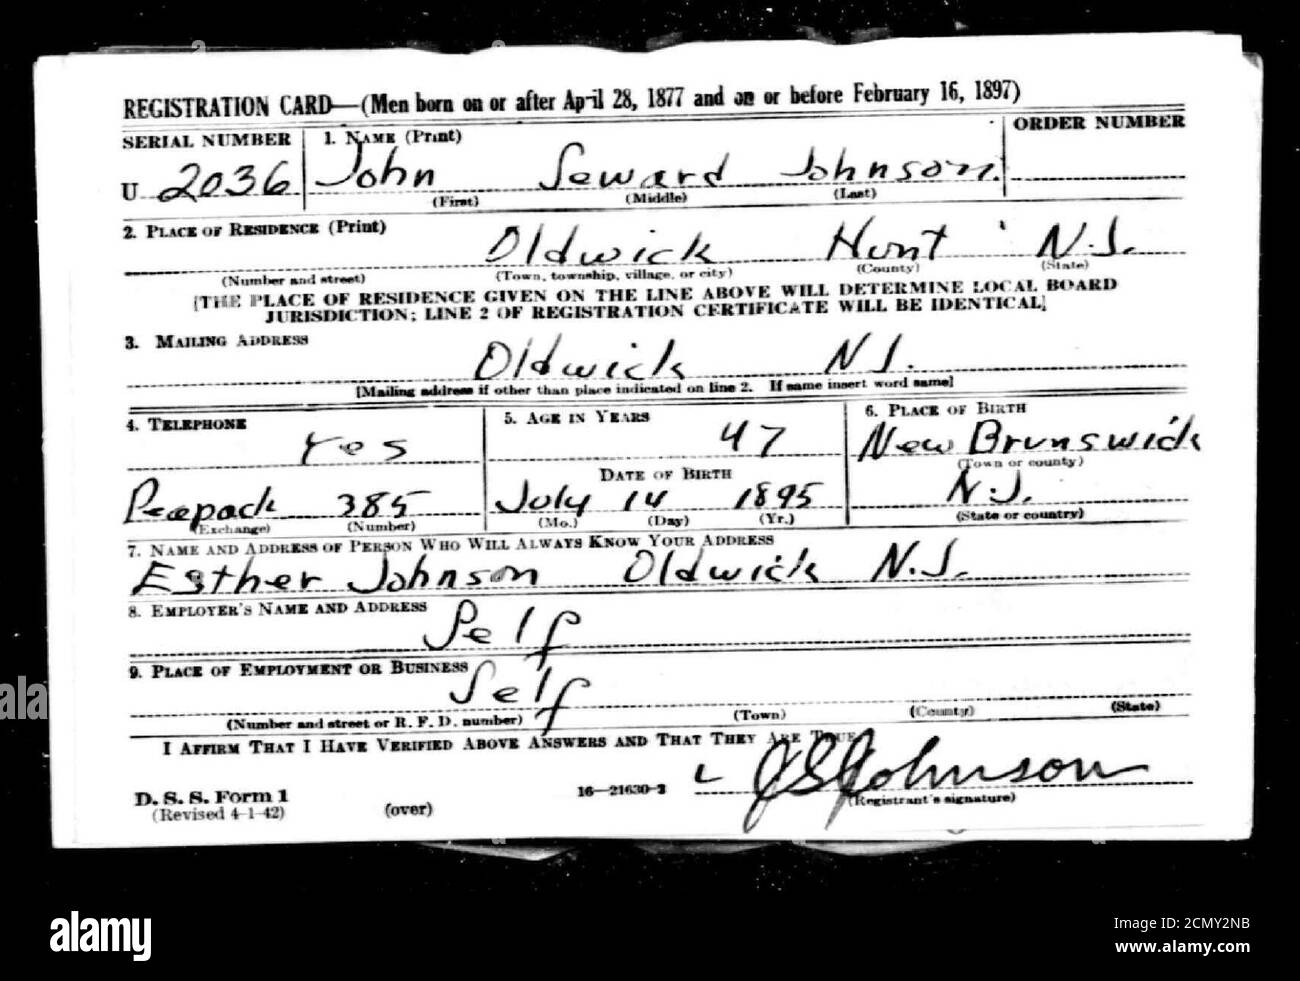 REGISTRATION CARD—(Men born on or after April 28, 1877 and on or before February 16, 1897)
SERIAL NUMBER
1. NAME (Print)
ORDER NUMBER
U 2036
John Seward Johnson
(First) (Middle) (Last)
2. PLACE OF RESIDENCE (Print)
Oldwick Hunt N.J.
(Number and street) (Town, township, village, or city) (County) (State)
[THE PLACE OF RESIDENCE GIVEN ON THE LINE ABOVE WILL DETERMINE LOCAL BOARD
JURISDICTION; LINE 2 OF REGISTRATION CERTIFICATE WILL BE IDENTICAL]
3. MAILING ADDRESS
Oldwick N.J.
[Mailing address if other than place indicated on line 2. If same insert word same]
4. TELEPHONE
5. AGE IN YEARS
6. PLACE OF BIRTH
Yes
47
New Brunswick
DATE OF BIRTH
(Town or county)
Peapack 385
July 14 1895
N.J.
(Exchange) (Number)
(Mo.) (Day) (Yr.)
(State or country)
7. NAME AND ADDRESS OF PERSON WHO WILL ALWAYS KNOW YOUR ADDRESS
Esther Johnson Oldwick N.J.
8. EMPLOYER'S NAME AND ADDRESS
Self
9. PLACE OF EMPLOYMENT OR BUSINESS
Self
(Number and street or R. F. D. number) (Town) (County) (State)
I AFFIRM THAT I HAVE VERIFIED ABOVE ANSWERS AND THAT THEY ARE TRUE
J S Johnson
D. S. S. Form 1
(Revised 4-1-42)
(over)
16—21630-2
(Registrant's signature)
alamy
Image ID: 2CMY2NB
www.alamy.com